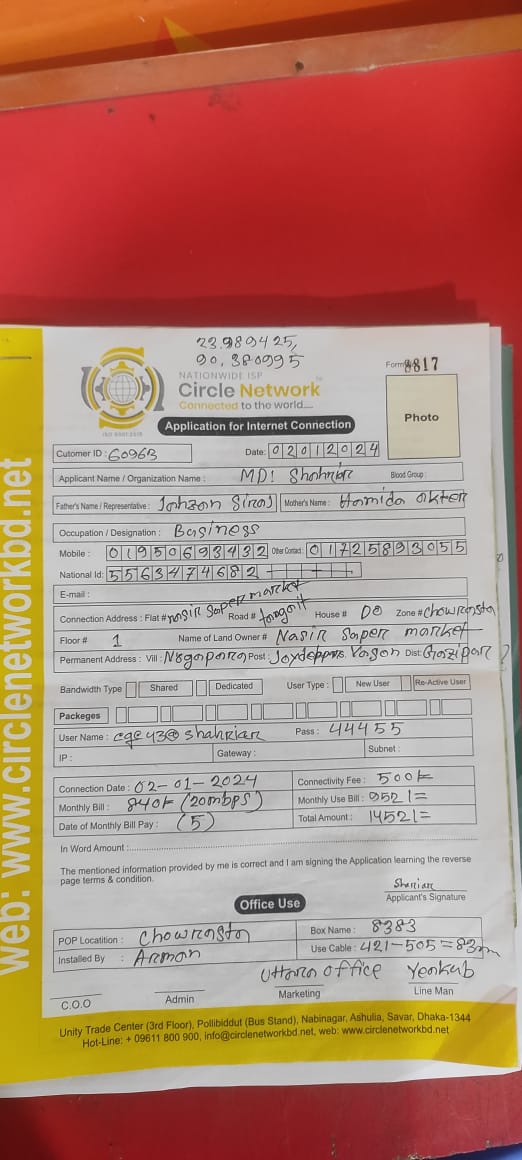 23.989425,
90.380995
NATIONWIDE ISP
Circle Network
Connected to the world....
ISO 9001:2015
Form 8817
Photo
Application for Internet Connection
Cutomer ID : 60963 Date: 02012024
Applicant Name / Organization Name : MD: Blood Group :
Father's Name / Representative : Mother's Name : Hamida akter
Occupation / Designation : Business
Mobile : 01950693432 Other Contact : 01725893055
National Id: 5563474682
E-mail :
Connection Address : Flat # nasir Saper market Road # House # DO Zone # chowrasta
Floor # 1 Name of Land Owner # Nasir Saper market
Permanent Address : Vill : Post : Dist:
Bandwidth Type Shared Dedicated User Type : New User Re-Active User
Packeges
User Name : Pass : 44455
IP : Gateway : Subnet :
Connection Date : 02-01-2024 Connectivity Fee :
Monthly Bill : (20mbps) Monthly Use Bill : 952/=
Date of Monthly Bill Pay : (5) Total Amount : 1452/=
In Word Amount :
The mentioned information provided by me is correct and I am signing the Application learning the reverse
page terms & condition.
Sharian
Applicant's Signature
Office Use
POP Locatition : chowrasta Box Name : 8383
Installed By : Arman Use Cable : 421-505=83m
Uttara office
C.O.O Admin Marketing Line Man
Unity Trade Center (3rd Floor), Pollibiddut (Bus Stand), Nabinagar, Ashulia, Savar, Dhaka-1344
Hot-Line: + 09611 800 900, info@circlenetworkbd.net, web: www.circlenetworkbd.net
web: www.circlenetworkbd.net